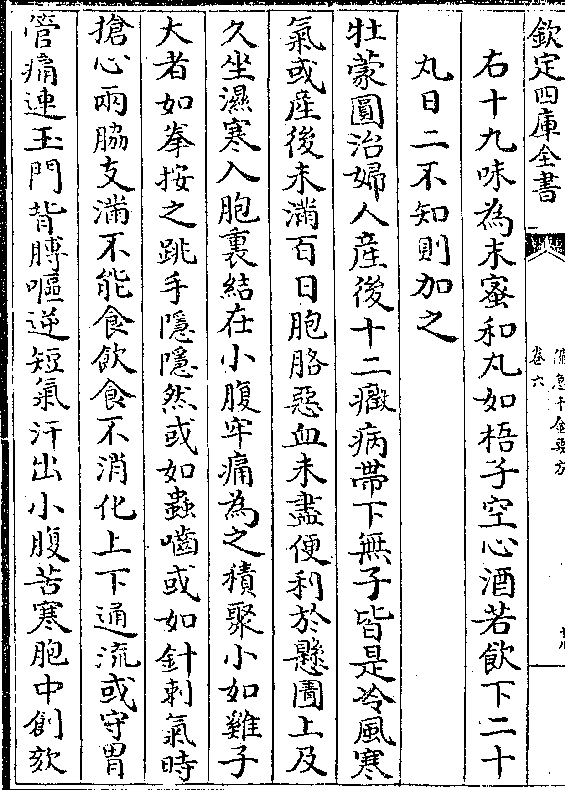 欽定四庫全書
備急千金要方
卷六
右十九味為末蜜和丸如梧子空心酒若飲下二十
丸日二不知則加之
牡蒙圓治婦人産後十二癥病帶下無子皆是冷風寒
氣或産後未滿百日胞胳惡血未盡便利於懸圊上及
久坐濕寒入胞裏結在小腹牢痛為之積聚小如雞子
大者如拳按之跳手隱隱然或如蟲嚙或如針刺氣時
搶心兩脇支滿不能食飲食不消化上下通流或守胃
管痛連玉門背膊嘔逆短氣汗出小腹苦寒胞中創欬